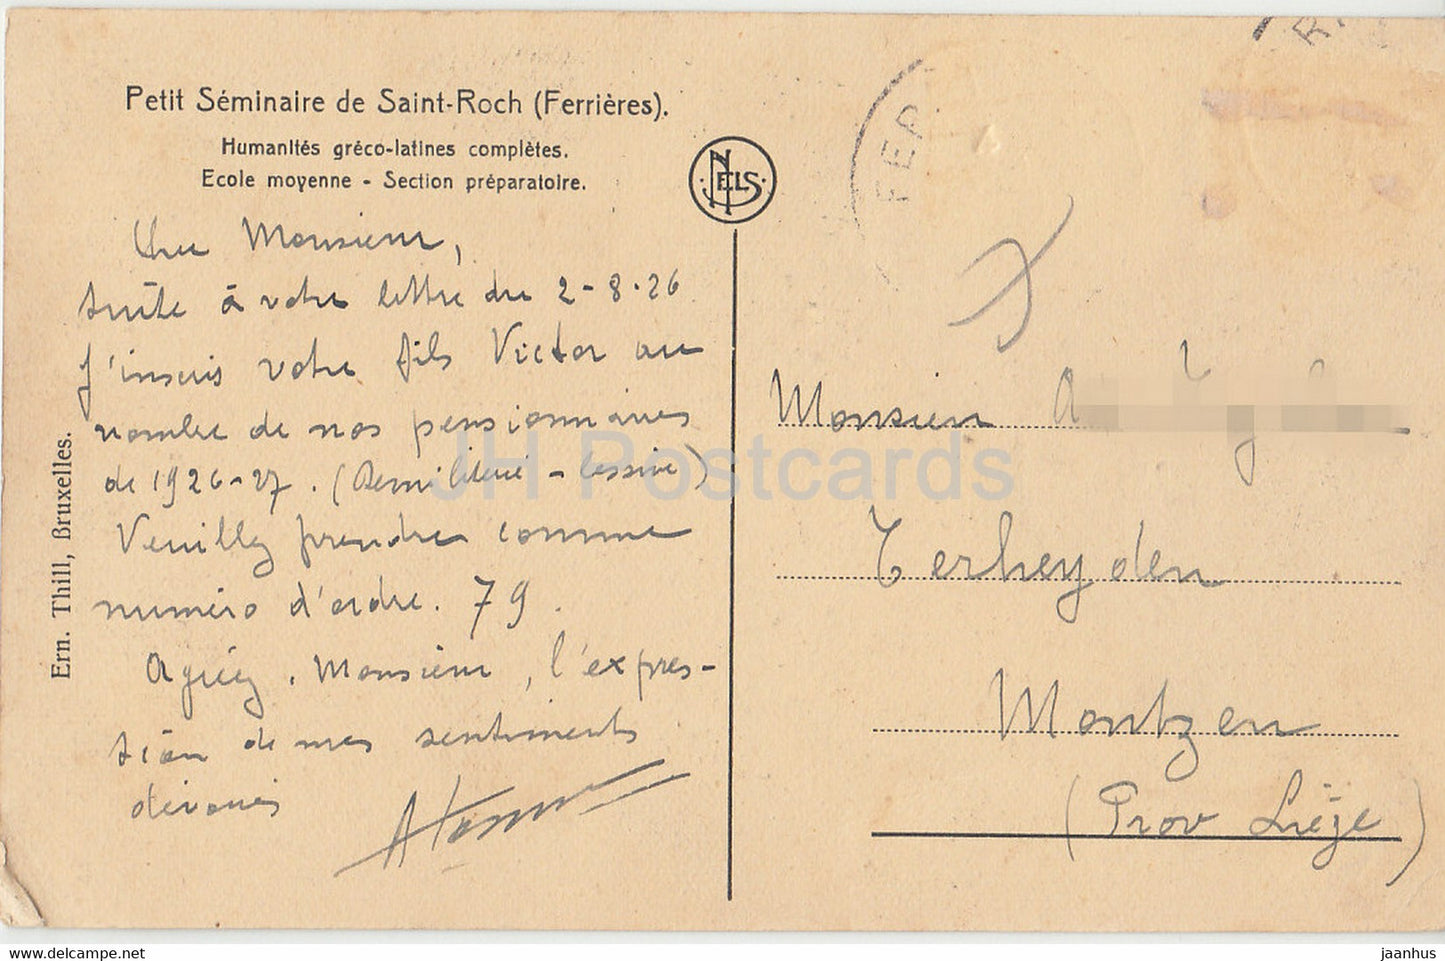 Petit Séminaire de Saint-Roch (Ferrières).
Humanités gréco-latines complètes.
Ecole moyenne - Section préparatoire.
NELS
Cher Monsieur,
suite à votre lettre du 2-8-26
j'inscris votre fils Victor au
nombre de nos pensionnaires
de 1926-27. (Demi literie - lessive)
Veuillez prendre comme
numéro d'ordre. 79.
Agréez, Monsieur, l'expres-
sion de mes sentiments
dévoués
Ern. Thill, Bruxelles.
FER
Monsieur
Terheyden
Montzen
(Prov Liège)
JH Postcards
www.jhpostcards.com
jaanhus